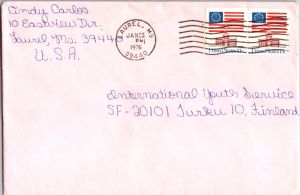 Cindy Carlos
10 Eastview Dr.
Laurel, Ms. 39440
U.S.A.
LAUREL, MS
JAN 23
PM
1976
39440
International Youth Service
SF-20101 Turku 10, Finland